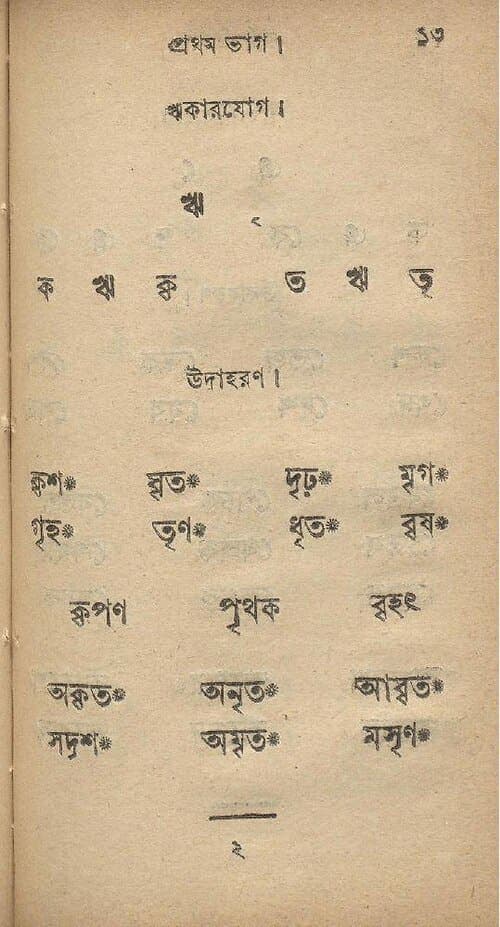 প্রথম ভাগ। ১৩
ঋকারযোগ।
ঋ ৃ
ক ঋ কৃ ত ঋ তৃ
উদাহরণ।
কৃশ* ঘৃত* দৃঢ়* মৃগ*
গৃহ* তৃণ* ধৃত* বৃষ*
কৃপণ পৃথক বৃহৎ
অকৃত* অনৃত* আবৃত*
সদৃশ* অমৃত* মসৃণ*
২